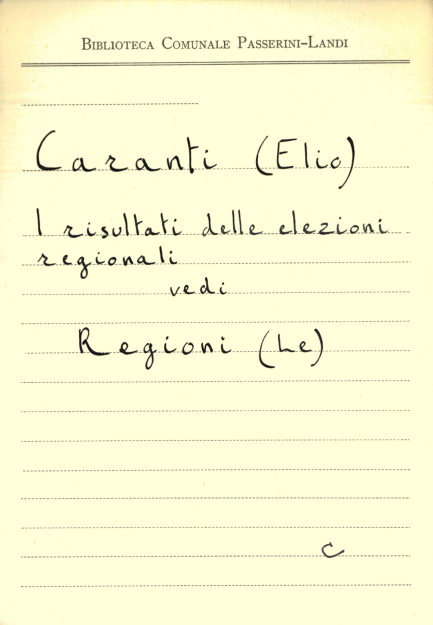 Biblioteca Comunale Passerini-Landi
Caranti (Elio)
I risultati delle elezioni
regionali
vedi
Regioni (Le)
C